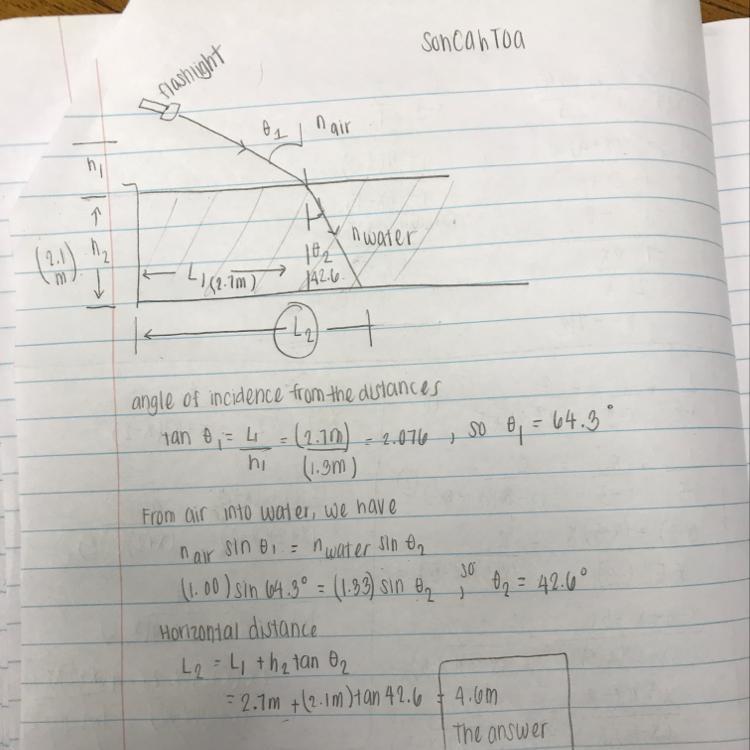 SohCahToa
flashlight
θ1 n air
h1
(2.1 m) h2
n water
L1 (2.7m)
θ2
42.6
L2
angle of incidence from the distances
tan θ1 = L1/h1 = (2.7m)/(1.3m) = 2.076 , so θ1 = 64.3°
From air into water, we have
n air sin θ1 = n water sin θ2
(1.00) sin 64.3° = (1.33) sin θ2 , so θ2 = 42.6°
Horizontal distance
L2 = L1 + h2 tan θ2
= 2.7m + (2.1m) tan 42.6 = 4.6m
The answer